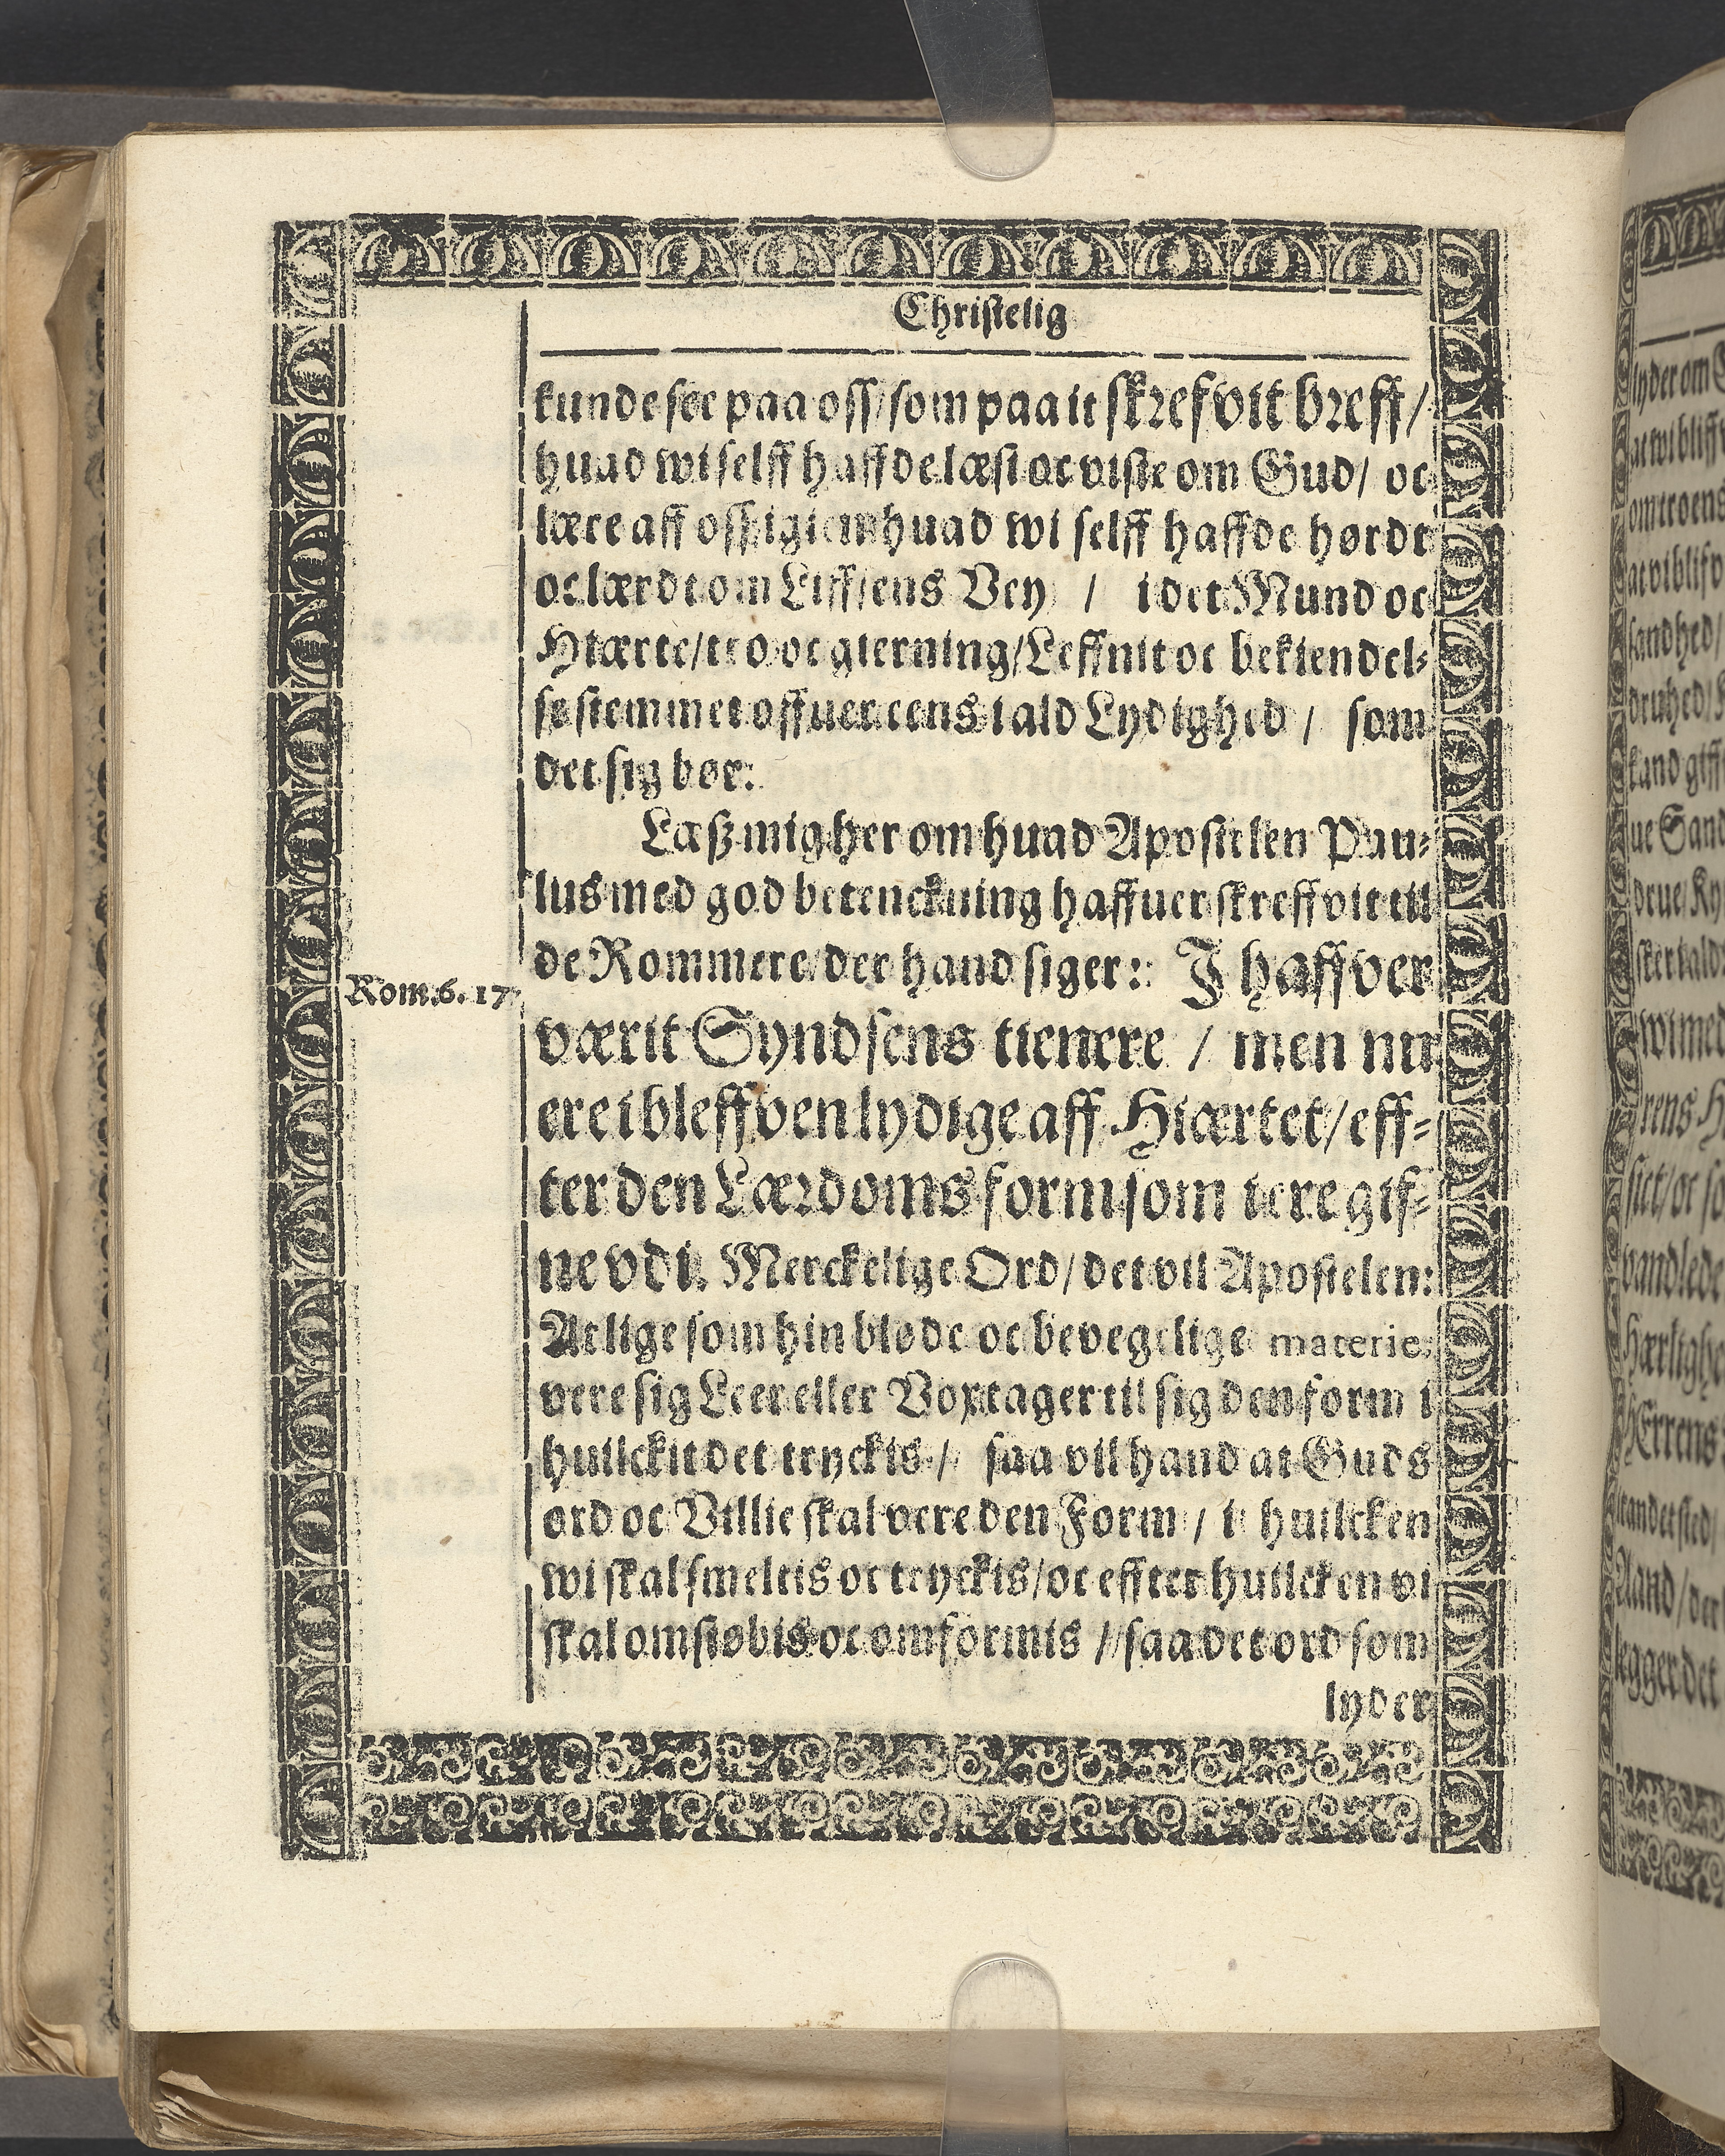 Christelig
kunde see paa oss/ som paa it skrefvit breff/
huad wi selff haffde læst oc viste om Gud/ oc
lære aff oss igien huad wi selff haffde hørdt
oc lærdt om Liffsens Vey / i det Mund oc
Hiærte/ tro oc gierning/ Leffnit oc bekiendel-
se stemmet offuer eens i ald Lydighed / som
det sig bør.
Læsz mig her om huad Apostelen Pau-
lus med god betenckning haffuer skreffvit til
de Rommere der hand siger: I haffver
Rom. 6. 17.
værit Syndsens tienere / men nu
ere i bleffven lydige aff Hiærtet/ eff-
ter den Lærdoms form som i ere gif-
ne vdi. Merckelige Ord/ det vil Apostelen:
At lige som hin bløde oc bevegelige materie
vere sig Leer eller Vox tager til sig den form i
huilckit det tryckis / saa vil hand at Guds
ord oc Villie skal vere den Form / i huilcken
wi skal smeltis oc tryckis/ oc effter huilcken vi
skal omstøbis oc omformis / saa det ord som
lyder